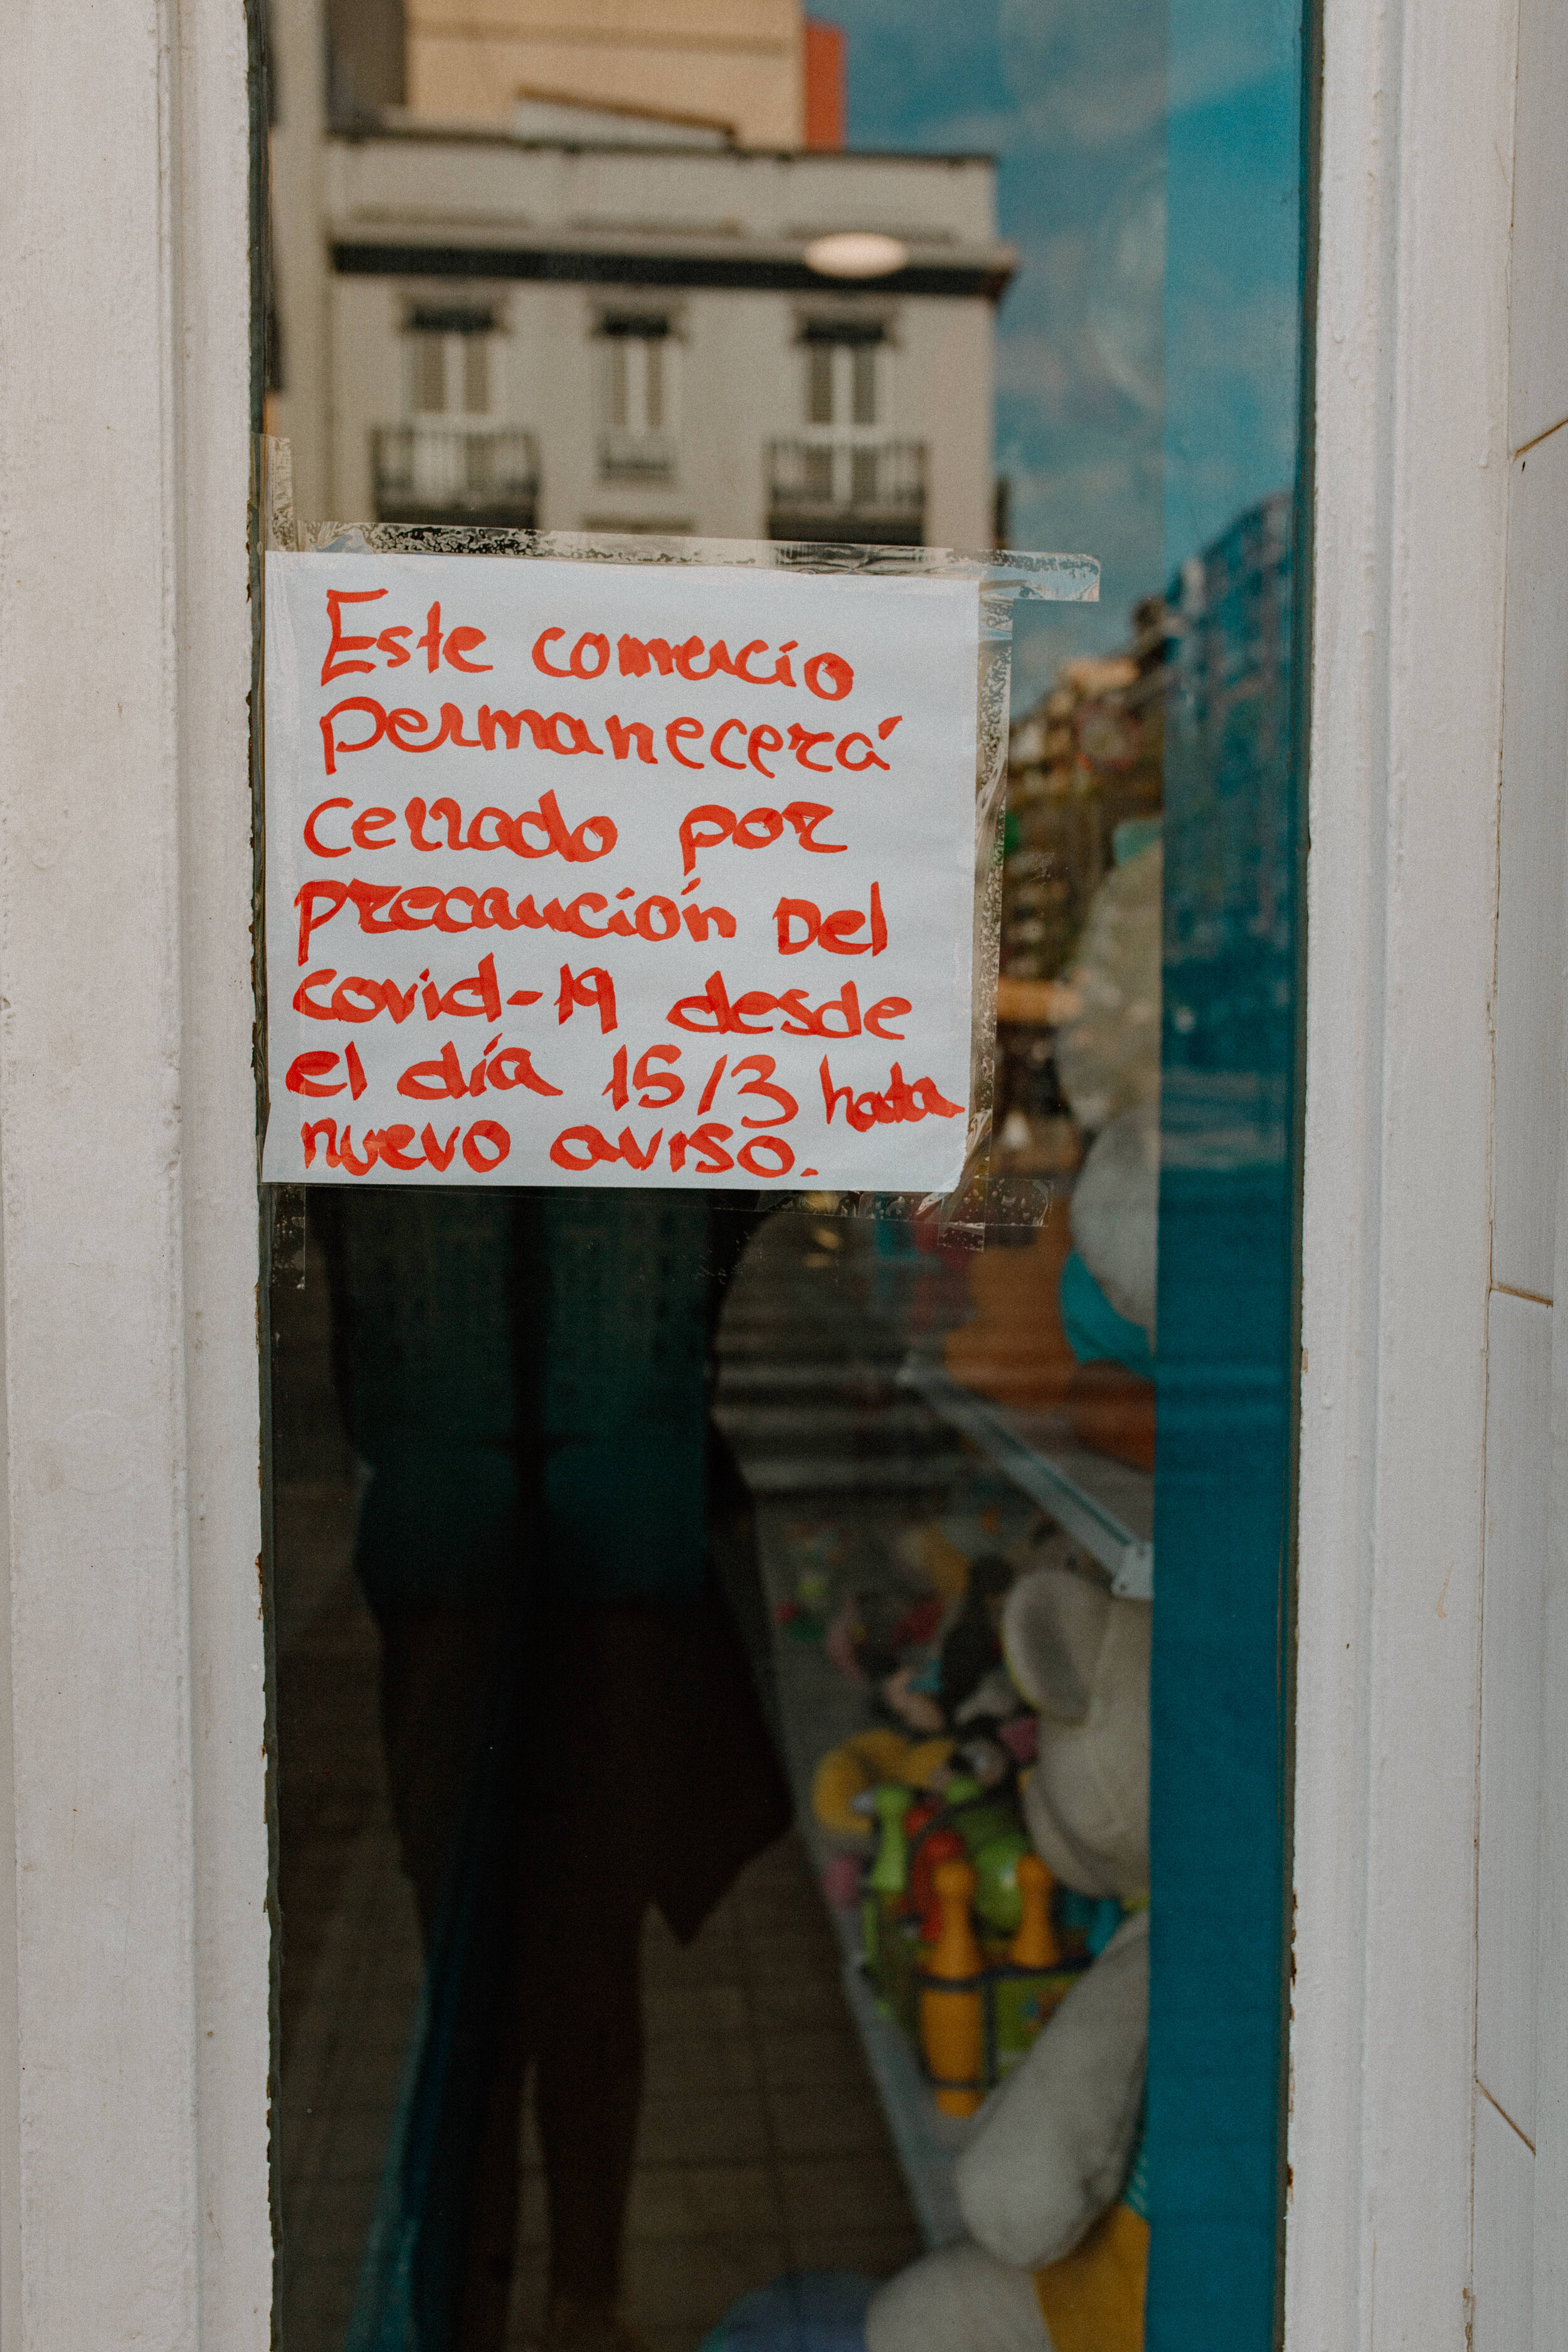 Este comercio
permanecerá
cerrado por
precaución Del
covid-19 desde
el día 15/3 hata
nuevo aviso.